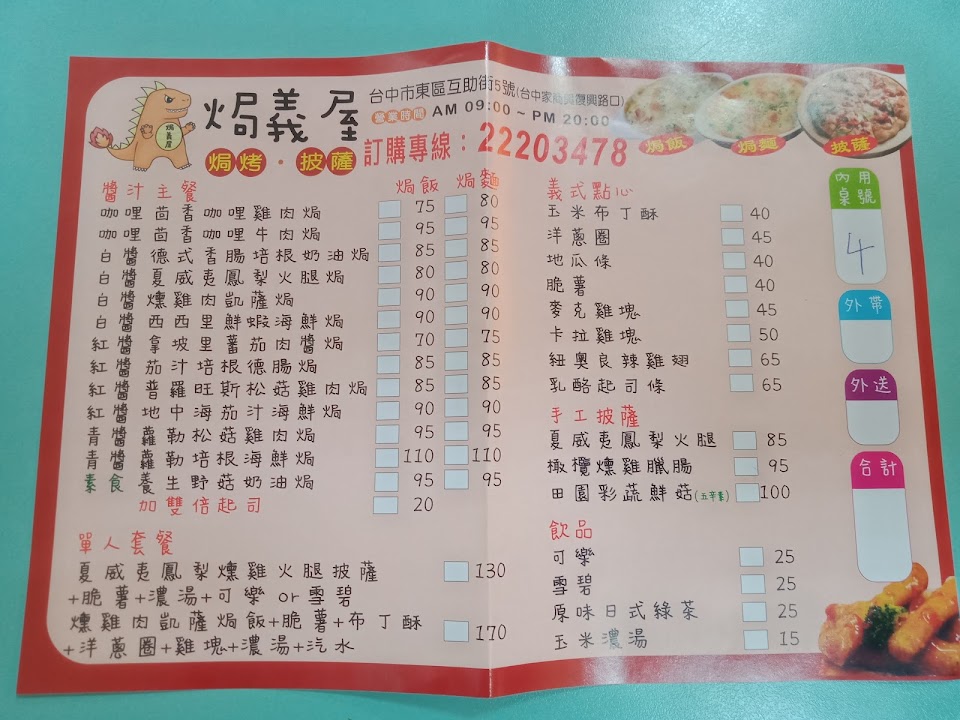 焗義屋
焗義屋
焗烤・披薩
台中市東區互助街5號(台中家商與復興路口)
營業時間 AM 09:00 ~ PM 20:00
訂購專線：22203478
焗飯 焗麵 披薩
醬汁主餐 焗飯 焗麵
咖哩茴香咖哩雞肉焗 75 80
咖哩茴香咖哩牛肉焗 95 95
白醬德式香腸培根奶油焗 85 85
白醬夏威夷鳳梨火腿焗 80 80
白醬燻雞肉凱薩焗 90 90
白醬西西里鮮蝦海鮮焗 90 90
紅醬拿坡里蕃茄肉醬焗 70 75
紅醬茄汁培根德腸焗 85 85
紅醬普羅旺斯松菇雞肉焗 85 85
紅醬地中海茄汁海鮮焗 90 90
青醬蘿勒松菇雞肉焗 95 95
青醬蘿勒培根海鮮焗 110 110
素食養生野菇奶油焗 95 95
加雙倍起司 20
單人套餐
夏威夷鳳梨燻雞火腿披薩 130
+脆薯+濃湯+可樂or雪碧
燻雞肉凱薩焗飯+脆薯+布丁酥 170
+洋蔥圈+雞塊+濃湯+汽水
義式點心
玉米布丁酥 40
洋蔥圈 45
地瓜條 40
脆薯 40
麥克雞塊 45
卡拉雞塊 50
紐奧良辣雞翅 65
乳酪起司條 65
手工披薩
夏威夷鳳梨火腿 85
橄欖燻雞臘腸 95
田園彩蔬鮮菇(五辛素) 100
飲品
可樂 25
雪碧 25
原味日式綠茶 25
玉米濃湯 15
內用
桌號
4
外帶
外送
合計